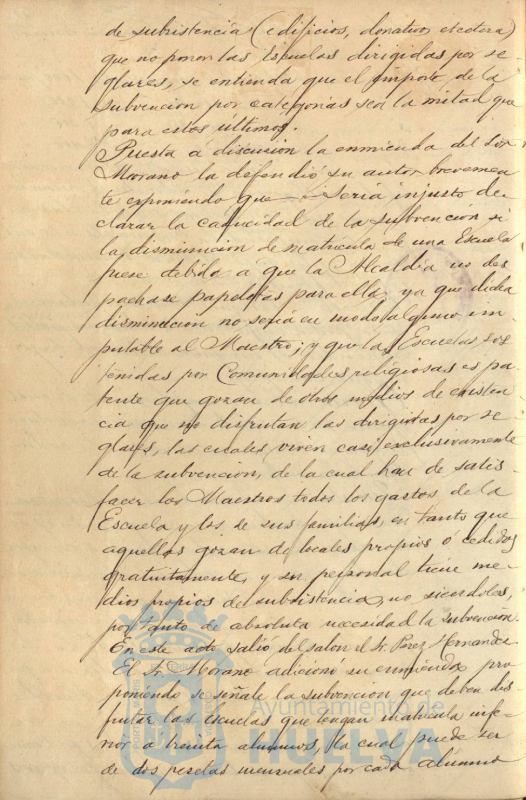 de subsistencia (edificios, donativos etcetera)
que no ponen las Escuelas dirigidas por se
glares, se entienda que el importe de la
subvencion por categorias sea la mitad que
para estos últimos.
Puesta á discusion la enmienda del Sor
Morano la defendió su autor brevemen
te exponiendo que sería injusto de
clarar la caducidad de la subvención si
la disminucion de matrícula de una Escuela
fuese debida á que la Alcaldía no des
pachase papeletas para ella, ya que dicha
disminucion no sería en modo alguno im
putable al Maestro; y que las Escuelas sos
tenidas por Comunidades religiosas es pa
tente que gozan de otros medios de existen
cia que no disfrutan las dirigidas por se
glares, las cuales viven casi exclusivamente
de la subvencion, de la cual han de satis
facer los Maestros todos los gastos de la
Escuela y los de sus familias, en tanto que
aquellas gozan de locales propios ó cedidos
gratuitamente, y su personal tiene me
dios propios de subsistencia, no siendoles,
por tanto de absoluta necesidad la subvencion.
En este acto salió del salon el Sr. Perez Hernandez
El Sr. Morano adicionó su enmienda pro
poniendo se señale la subvencion que deben dis
frutar las escuelas que tengan matrícula infe
rior a treinta alumnos, la cual puede ser
de dos pesetas mensuales por cada alumno
Ayuntamiento de
HUELVA